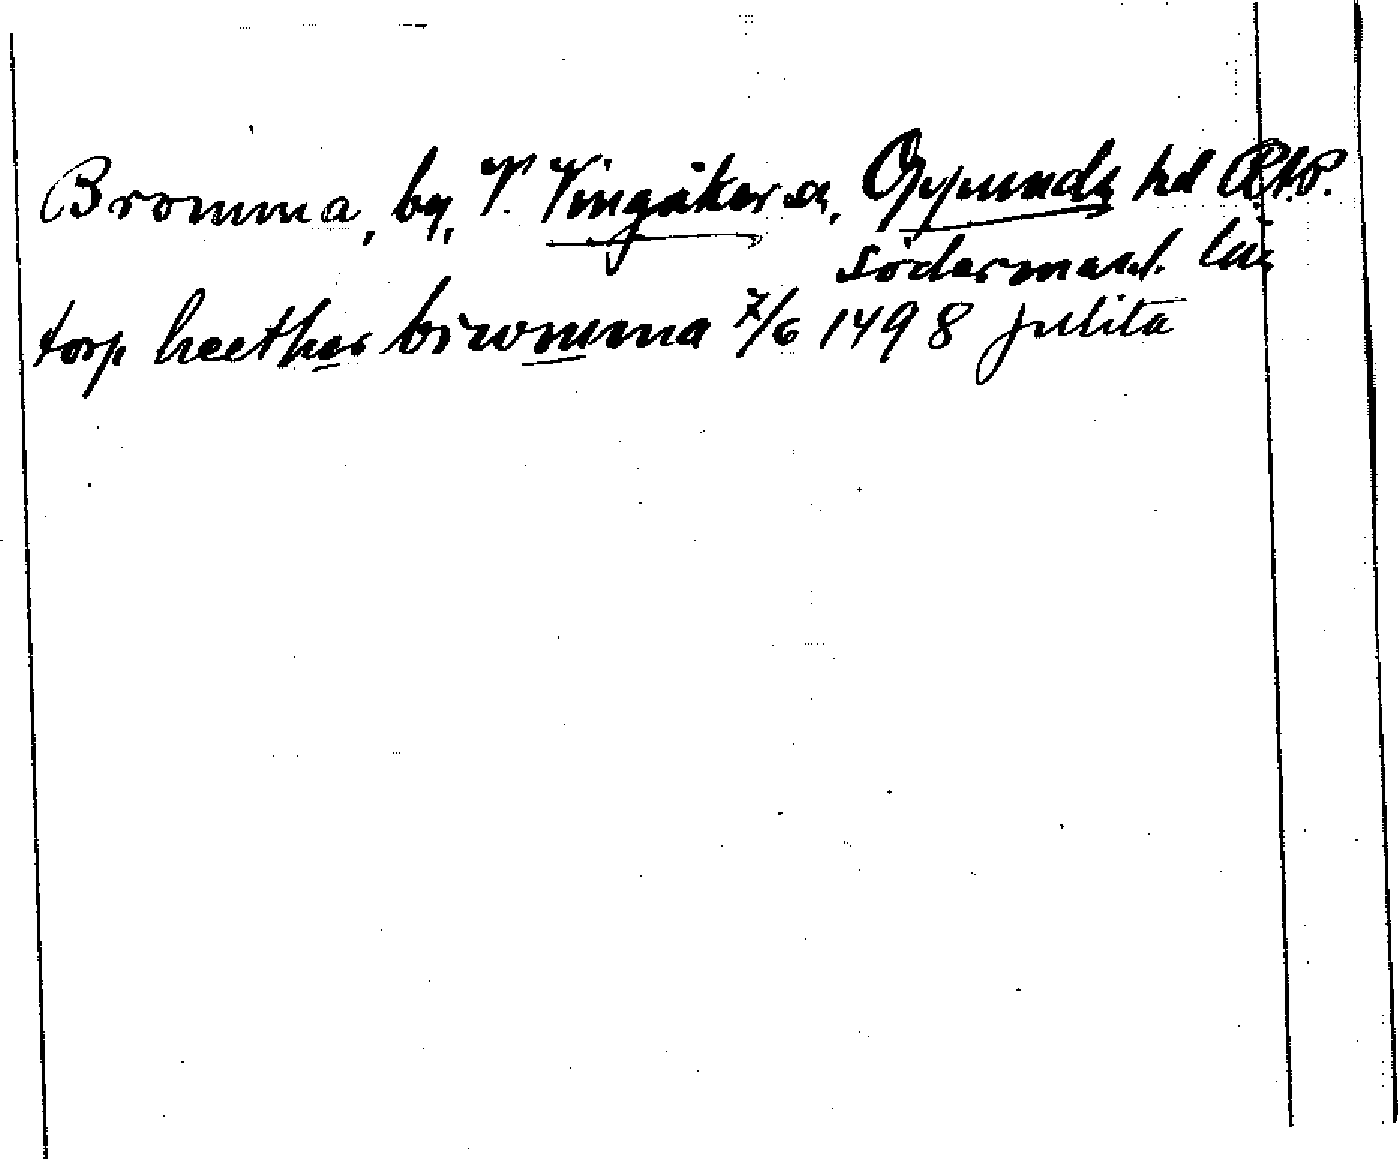 Bromma, by, V. Vingåker sn, Oppunda hd RAP.
Södermanl. län
torp heether browmma 7/6 1498 Julita